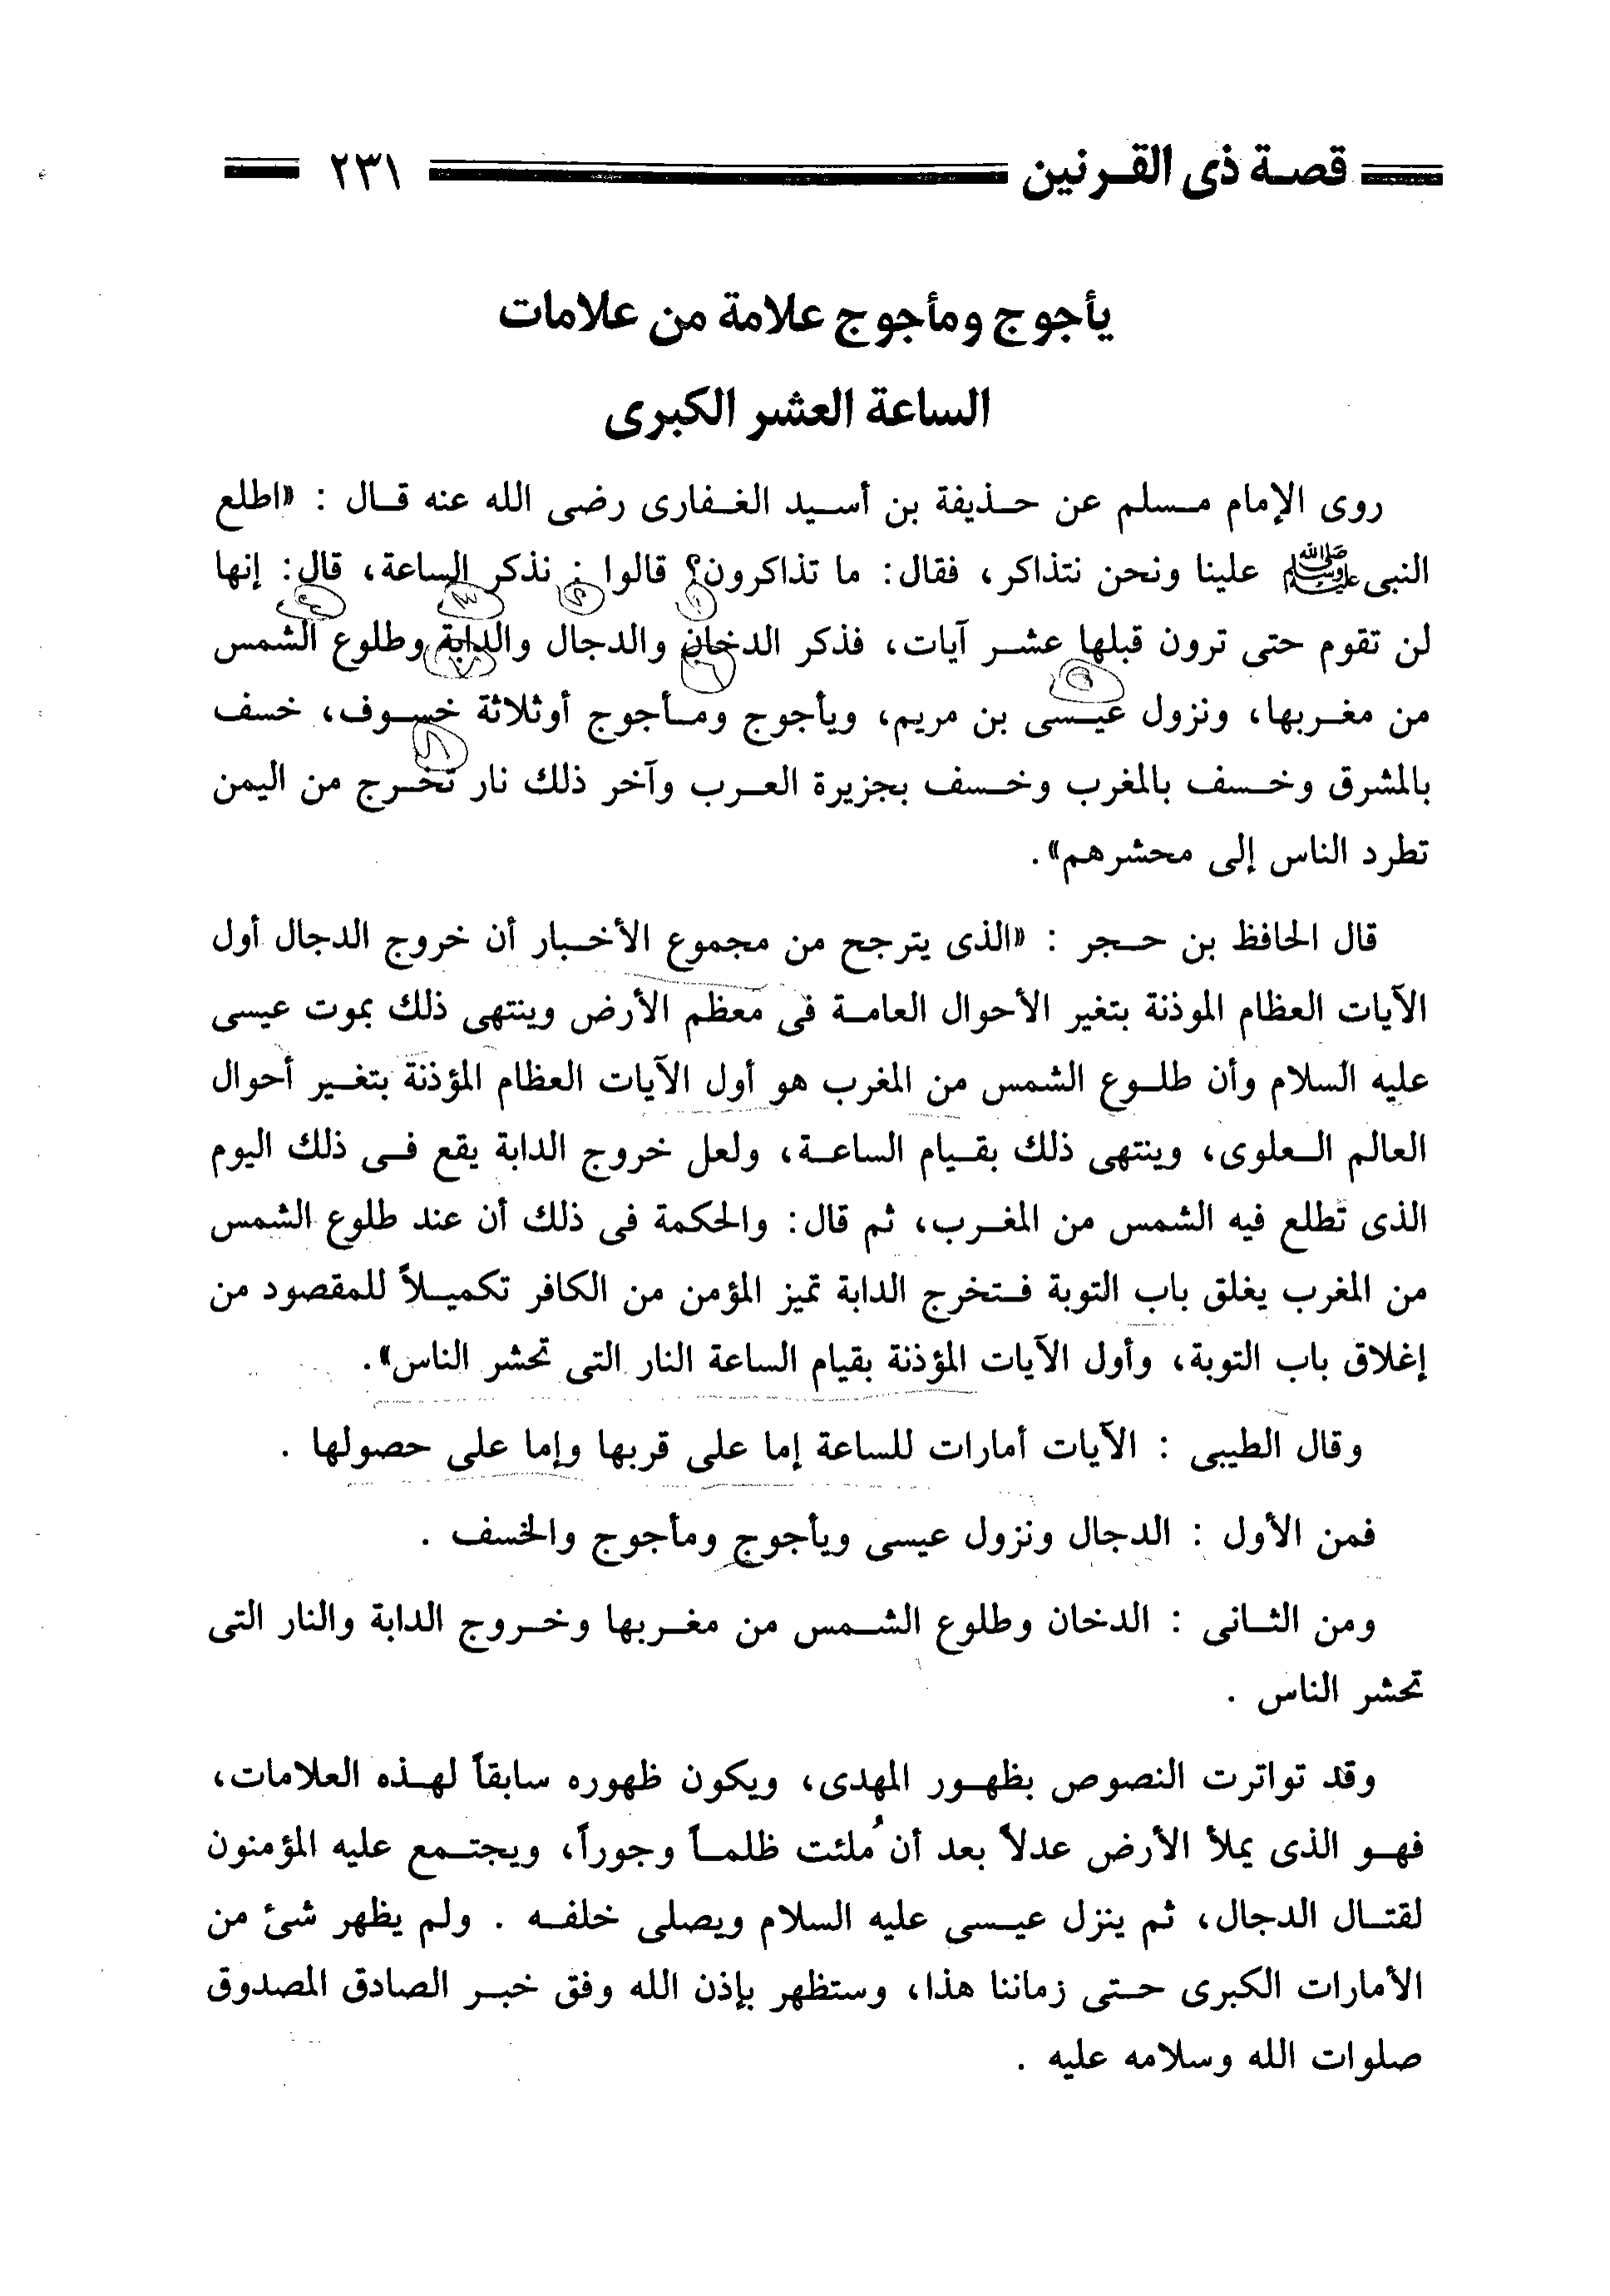 قصة ذى القرنين ٢٣١
يأجوج ومأجوج علامة من علامات
الساعة العشر الكبرى
روى الإمام مسلم عن حذيفة بن أسيد الغفارى رضى الله عنه قال : «اطلع
النبى ﷺ علينا ونحن نتذاكر، فقال: ما تذاكرون؟ قالوا : نذكر الساعة، قال: إنها
١ ٢ ٣ ٤
لن تقوم حتى ترون قبلها عشر آيات، فذكر الدخان والدجال والدابة وطلوع الشمس
٥ ٦ ٧
من مغربها، ونزول عيسى بن مريم، ويأجوج ومأجوج أوثلاثة خسوف، خسف
٨
بالمشرق وخسف بالمغرب وخسف بجزيرة العرب وآخر ذلك نار تخرج من اليمن
تطرد الناس إلى محشرهم» .
قال الحافظ بن حجر : «الذى يترجح من مجموع الأخبار أن خروج الدجال أول
الآيات العظام الموذنة بتغير الأحوال العامة فى معظم الأرض وينتهى ذلك بموت عيسى
عليه السلام وأن طلوع الشمس من المغرب هو أول الآيات العظام المؤذنة بتغير أحوال
العالم العلوى، وينتهى ذلك بقيام الساعة، ولعل خروج الدابة يقع فى ذلك اليوم
الذى تطلع فيه الشمس من المغرب، ثم قال: والحكمة فى ذلك أن عند طلوع الشمس
من المغرب يغلق باب التوبة فتخرج الدابة تميز المؤمن من الكافر تكميلاً للمقصود من
إغلاق باب التوبة، وأول الآيات المؤذنة بقيام الساعة النار التى تحشر الناس» .
وقال الطيبى : الآيات أمارات للساعة إما على قربها وإما على حصولها .
فمن الأول : الدجال ونزول عيسى ويأجوج ومأجوج والخسف .
ومن الثانى : الدخان وطلوع الشمس من مغربها وخروج الدابة والنار التى
تحشر الناس .
وقد تواترت النصوص بظهور المهدى، ويكون ظهوره سابقاً لهذه العلامات،
فهو الذى يملأ الأرض عدلاً بعد أن مُلئت ظلماً وجوراً، ويجتمع عليه المؤمنون
لقتال الدجال، ثم ينزل عيسى عليه السلام ويصلى خلفه . ولم يظهر شئ من
الأمارات الكبرى حتى زماننا هذا، وستظهر بإذن الله وفق خبر الصادق المصدوق
صلوات الله وسلامه عليه .